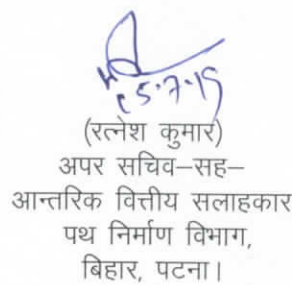 25.7.19
(रत्नेश कुमार)
अपर सचिव–सह–
आन्तरिक वित्तीय सलाहकार
पथ निर्माण विभाग,
बिहार, पटना।